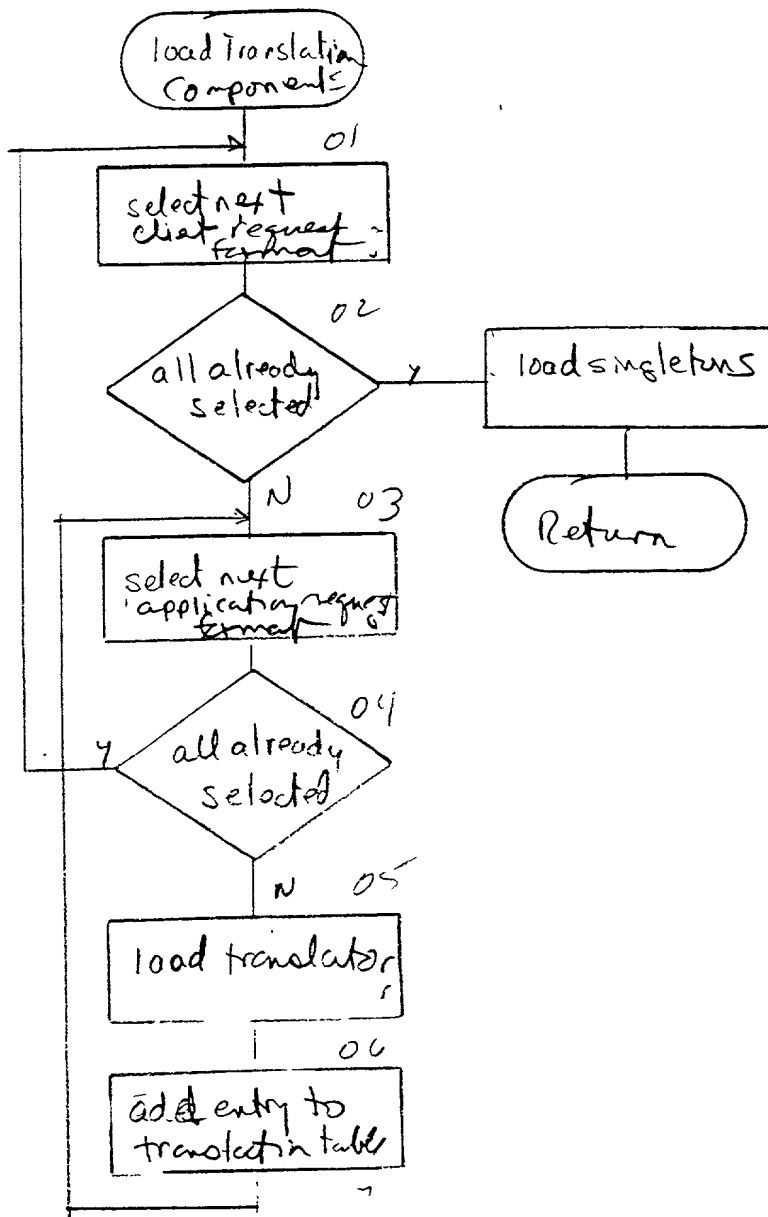 load Translation
Components
01
select next
client request
format
02
all already
selected
Y
load singletons
N
03
Return
select next
application request
format
04
all already
selected
Y
N
05
load translator
06
add entry to
translation table